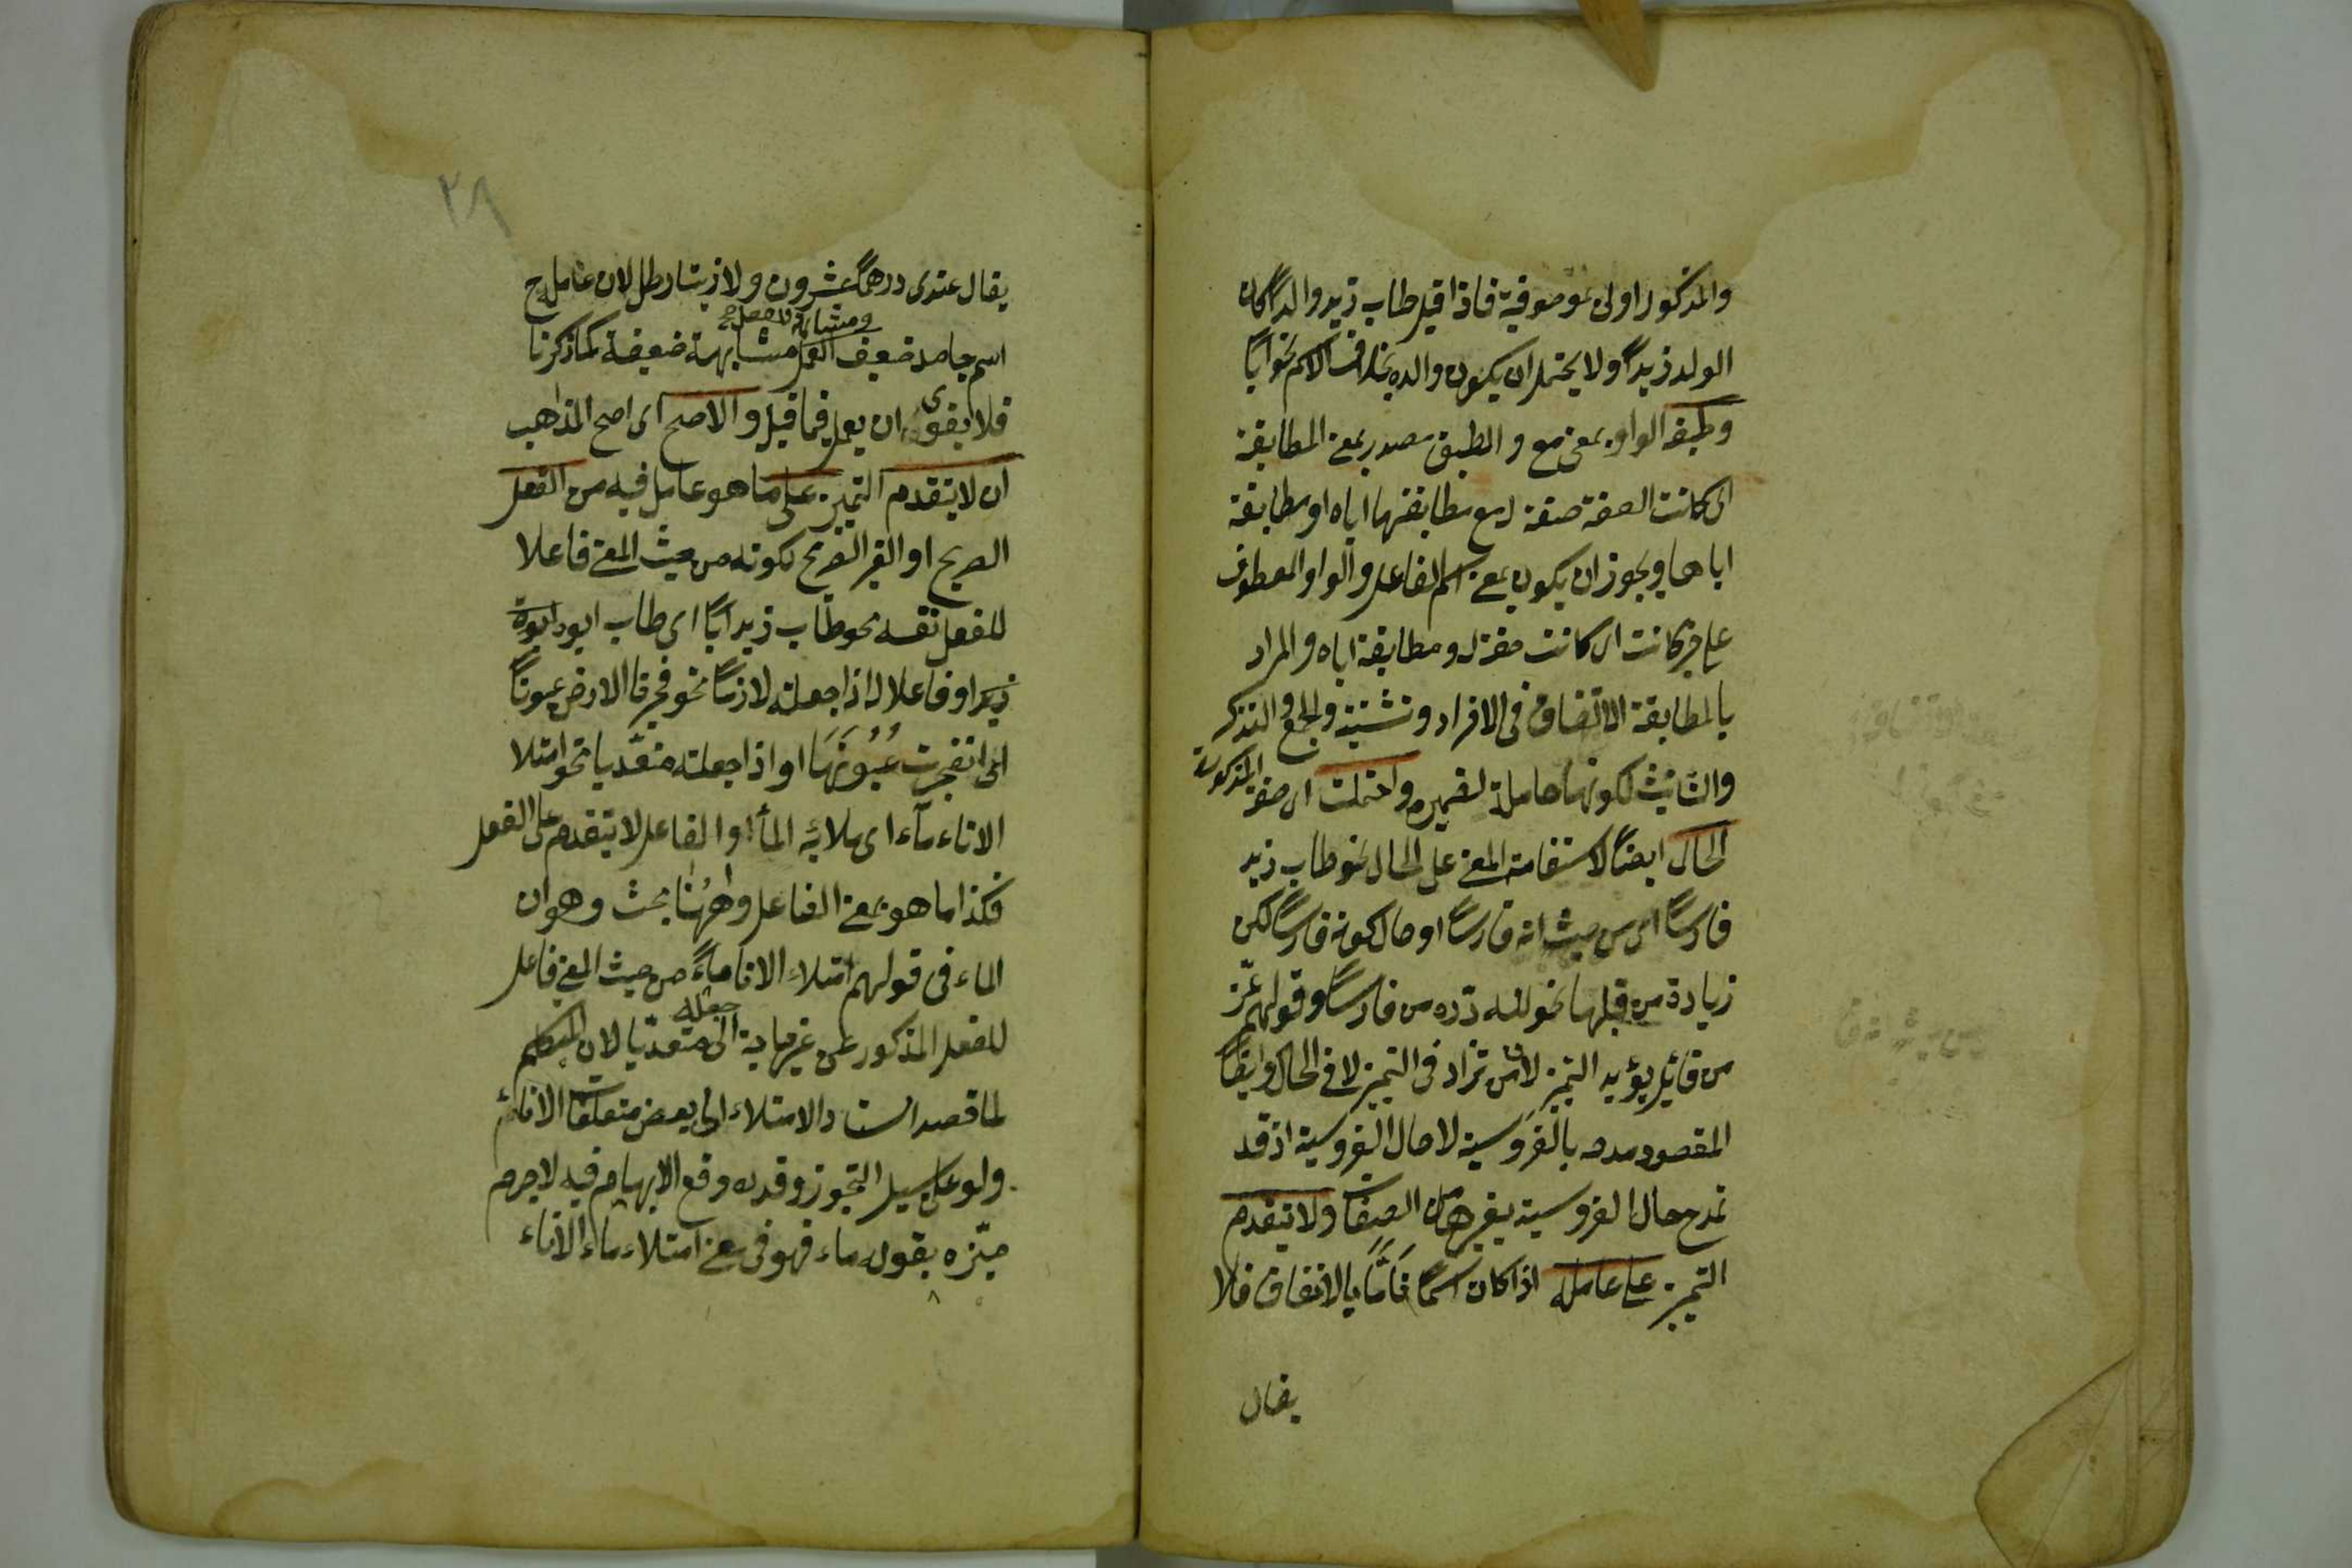 والمذكور اولى بموصوفية فاذا قيل طاب زيد والدا كان
الولد زيداً ولا يحتمل ان يكون والده بخلاف الاسم نحو ابًا
وطبقه الواو بمعنى مع والطبق مصدر بمعنى المطابقة
اى كانت الصفة صفة له مع مطابقتها اياه او مطابقة
اياها ويجوز ان يكون بمعنى اسم الفاعل والواو المعطوف
على خبر كانت اى كانت صفة له ومطابقة اياه والمراد
بالمطابقة الاتفاق فى الافراد وتثنية والجمع والتذكير
والتانيث لكونها حاملة لضميره واحتملت اى صفة المذكورة
الحال ايضاً لاستقامة المعنى على الحال نحو طاب زيد
فارساً اى من حيث انه فارساً او حال كونه فارساً لكن
زيادة من قبلها نحو لله دره من فارساً وقولهم عزّ
من قائل يؤيد التميز لان من تزاد فى التميز لا فى الحال وايضاً
المقصود مدحه بالفروسية لا حال الفروسية اذ قد
تمدح حال الفروسية بغيرها من الصفات ولا يتقدم
التميز على عامله اذا كان اسماً تامّاً بالاتفاق فلا
يقال
٢٨
يقال عندى درهماً عشرون ولا زيتا رطل لان عامله ح
اسم جامد ضعيف العمل ومشابه للفعل صح مشابهة ضعيفة كما ذكرنا
فلا يقوى ان يعمل فيما قبل والاصح اى اصح المذاهب
ان لا يتقدم التميز على ما هو عامل فيه من الفعل
الصريح او الغير الصريح لكونه من حيث المعنى فاعلا
للفعل نفسه نحو طاب زيد ابًا اى طاب ابوه ابوة
زيد او فاعلا له اذا جعلته لازماً نحو فجرنا الارض عيوناً
اى انفجرت عُيُونَهَا او اذا جعلته متعّديا نحو امتلا
الاناء مآء اى ملائه المأ والفاعل لا يتقدم على الفعل
فكذا ما هو بمعنى الفاعل وههُنا بحث وهو ان
الماء فى قولهم امتلاء الانا ماءً من حيث المعنى فاعل
للفعل المذكور من غير حاجة الى جعله متعدّيا لان المتكلم
لما قصد اسناد الامتلاء الى بعض متعلقات الاناء
ولو على سبيل التجوز وقدره وقع الابهام فيه لا جرم
ميّزه بقوله ماء فهو فى معنى امتلاء ماء الاناء